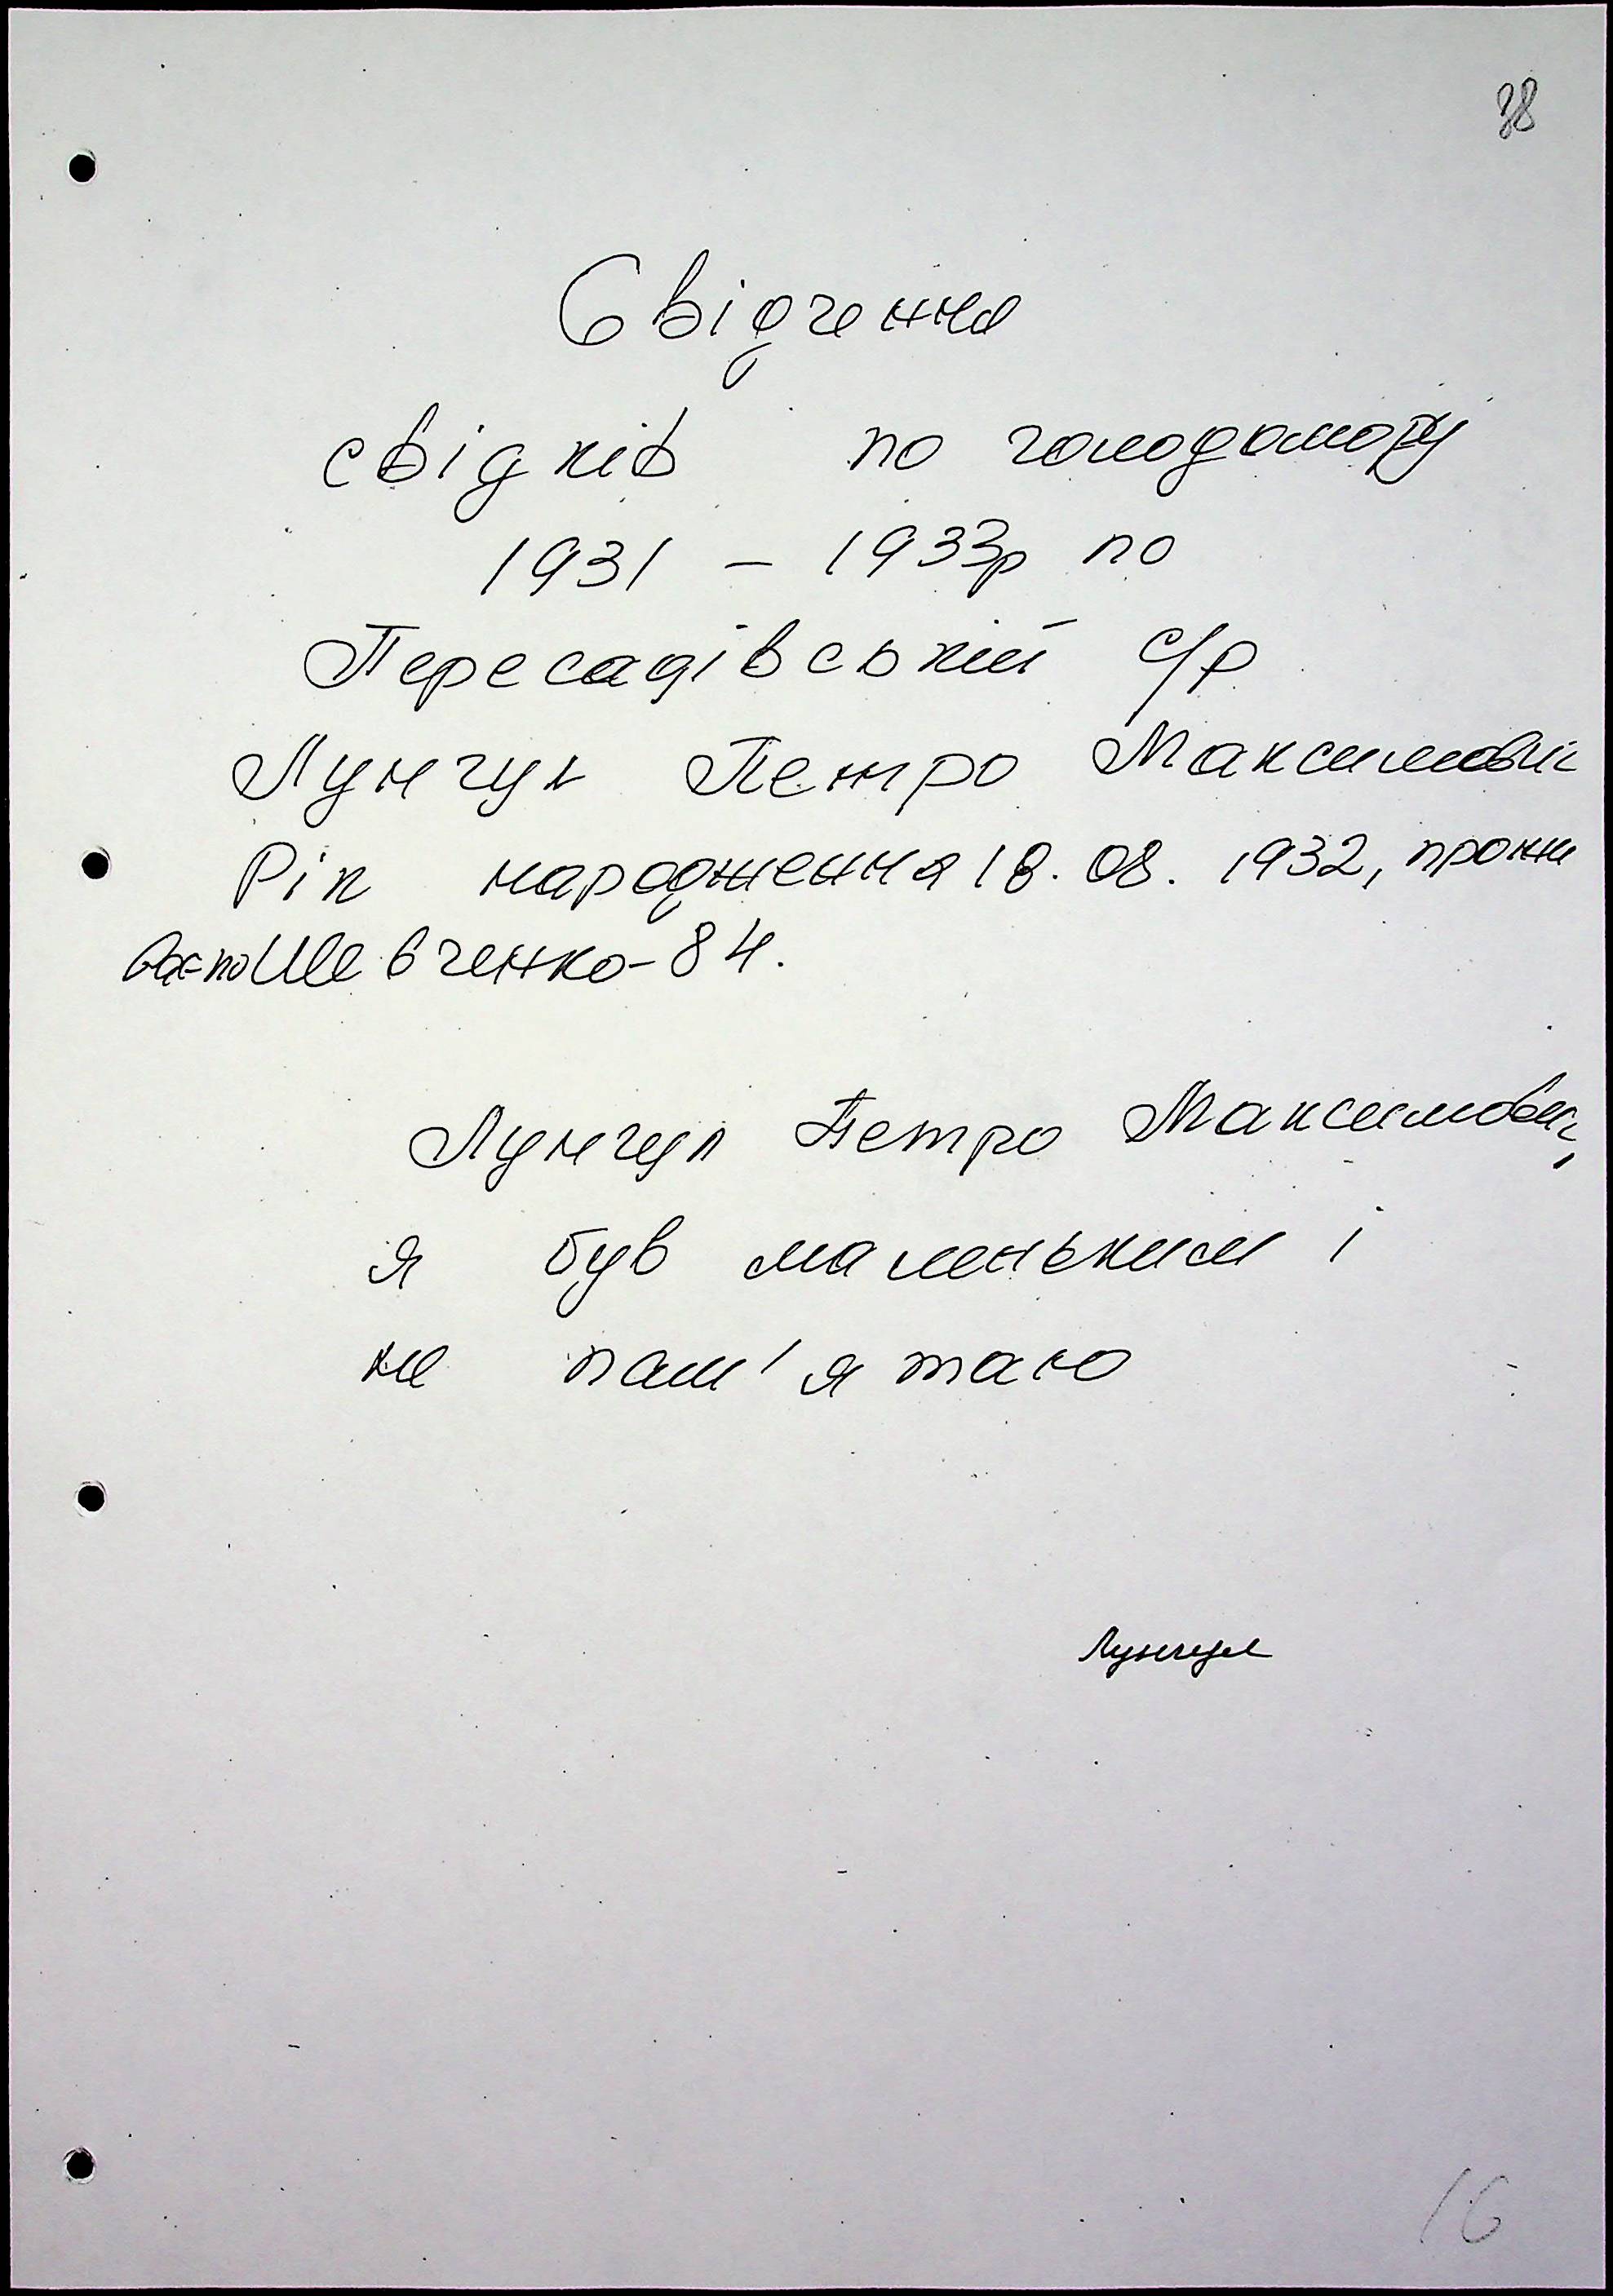 38
Свідчення
свідків по голодомору
1931 - 1933р по
Пересадівській с/р
Лунгул Петро Максимович
Рік народження 18.08.1932, прожи
ває по Шевченко-84.
Лунгул Петро Максимович,
я був маленьким і
не пам'ятаю
Лунгул
16